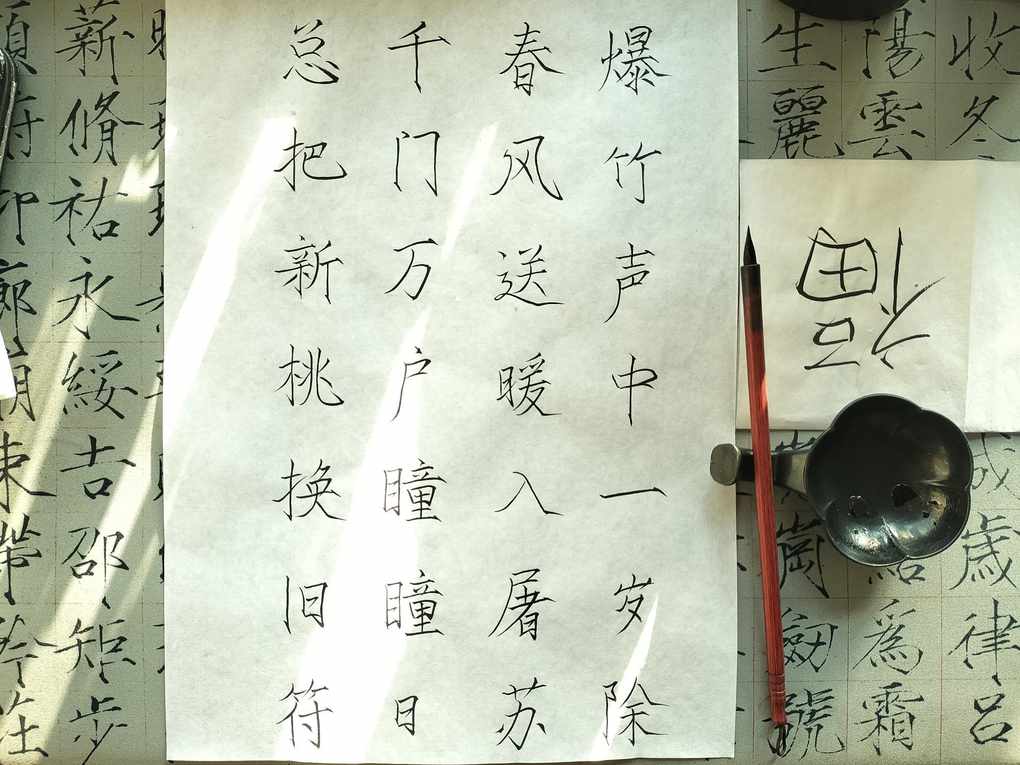 爆竹声中一岁除
春风送暖入屠苏
千门万户瞳瞳日
总把新桃换旧符
福
收冬
陽雲
生麗
歲律呂
為霜
劒號
薪脩祐永綏吉邵
矩步
束帶矜莊